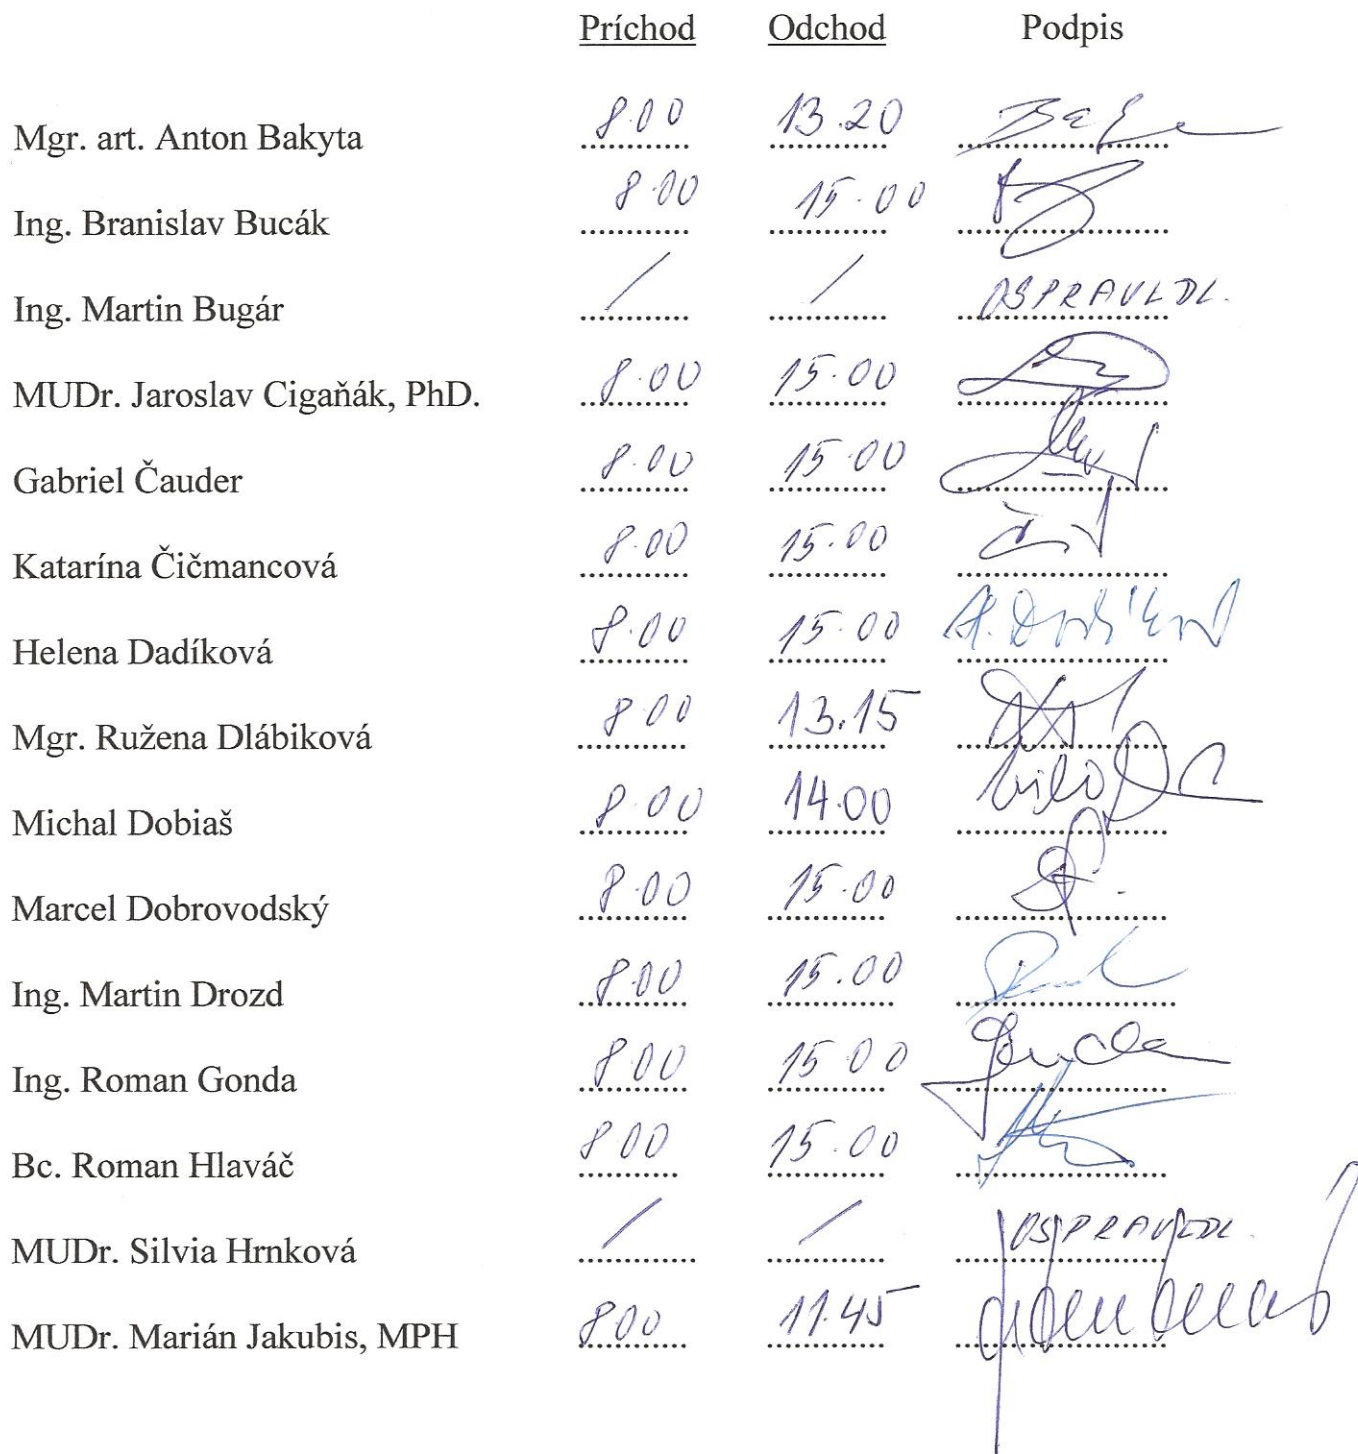 Príchod Odchod Podpis
Mgr. art. Anton Bakyta 8.00 13.20
Ing. Branislav Bucák 8.00 15.00
Ing. Martin Bugár / / OSPRAVEDL.
MUDr. Jaroslav Cigaňák, PhD. 8.00 15.00
Gabriel Čauder 8.00 15.00
Katarína Čičmancová 8.00 15.00
Helena Dadíková 8.00 15.00
Mgr. Ružena Dlábiková 8.00 13.15
Michal Dobiaš 8.00 14.00
Marcel Dobrovodský 8.00 15.00
Ing. Martin Drozd 8.00 15.00
Ing. Roman Gonda 8.00 15.00 Gonda
Bc. Roman Hlaváč 8.00 15.00
MUDr. Silvia Hrnková / / OSPRAVEDL.
MUDr. Marián Jakubis, MPH 8.00 11.45